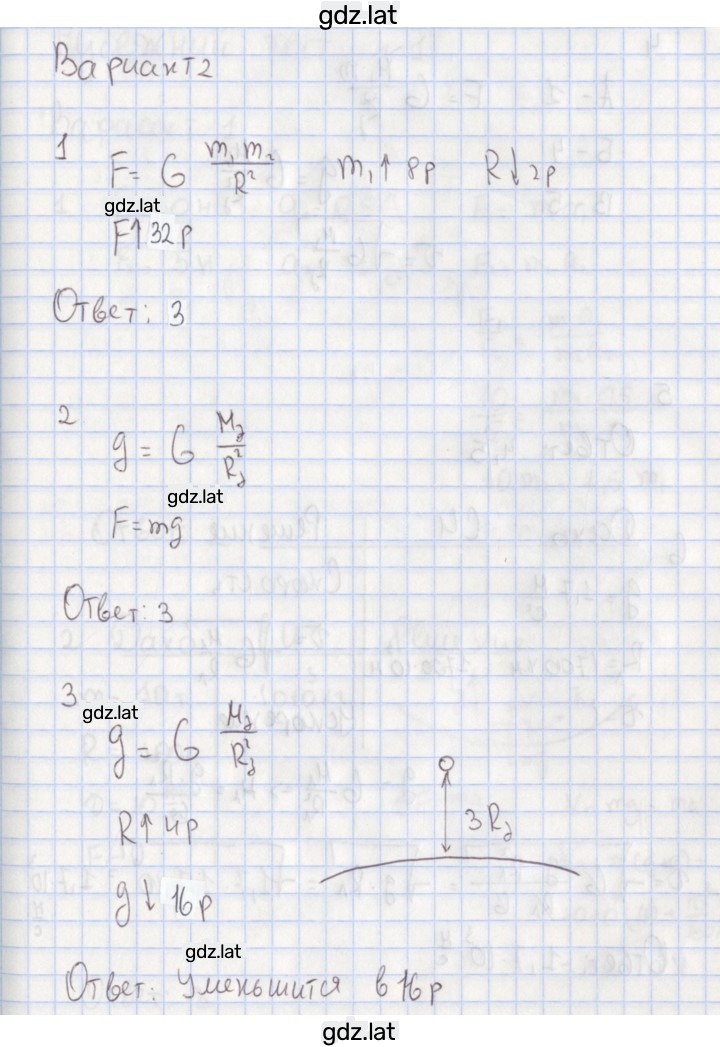 gdz.lat
Вариант 2
1
F = G m₁ m₂ / R² m₁ ↑ 8р R ↓ 2р
gdz.lat
F ↑ 32 р
Ответ: 3
2
g = G M₃ / R₃²
gdz.lat
F = mg
Ответ: 3
3
gdz.lat
g = G M₃ / R₃²
3 R₃
R ↑ 4р
g ↓ 16 р
gdz.lat
Ответ: Уменьшится в 16 р
gdz.lat